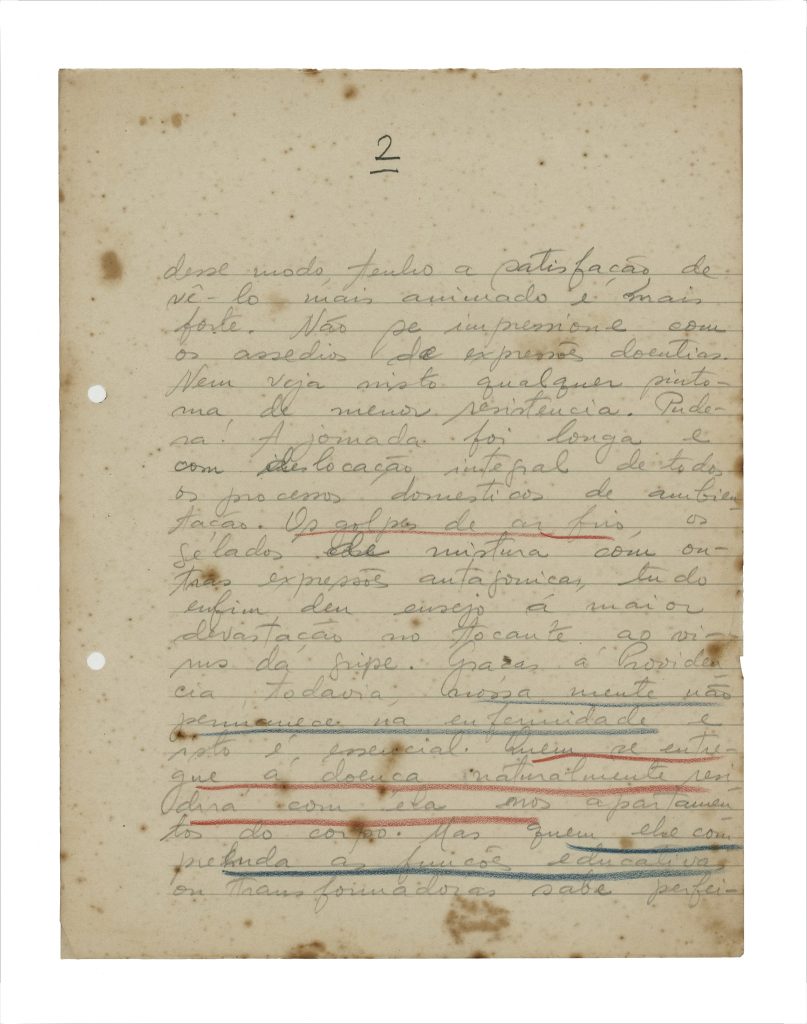 2
desse modo, tenho a satisfação de
vê-lo mais animado e mais
forte. Não se impressione com
os assedios de expressões doentias.
Nem veja nisto qualquer sinto-
ma de menor resistencia. Pude-
ra! A jornada foi longa e
com deslocação integral de todos
os processos domesticos de ambien
tação. Os golpes de ar frio, os
gelados de mistura com ou-
tras expressões antagonicas, tudo
enfim deu ensejo á maior
devastação no tocante ao vi-
rus da gripe. Graças á Providen
cia, todavia, nossa mente não
permanece na enfermidade e
isto é essencial. Quem se entre-
gue á doença naturalmente resi
dirá com ela nos apartamen
tos do corpo. Mas quem lhe com
prehenda as funções educativas
ou transformadoras sabe perfei-